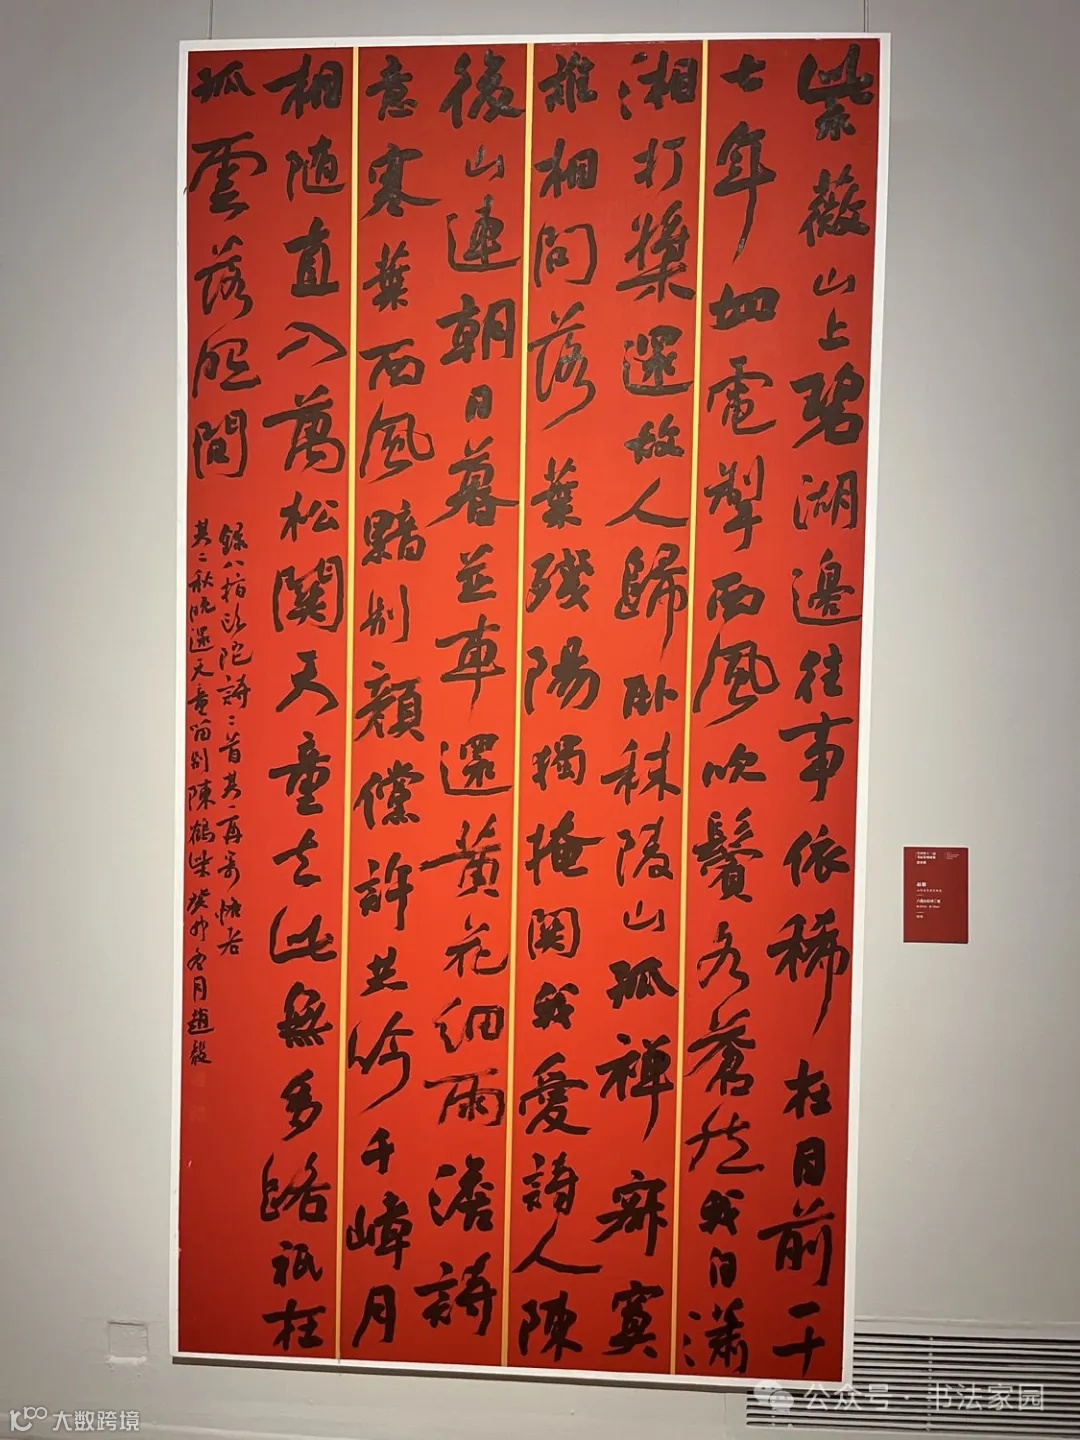 紫薇山上碧湖邊往事依稀在目前一十
七年如電掣西風吹鬢各蒼然我自瀟
湘打槳還故人歸卧秣陵山孤禪寂寞
誰相問落葉殘陽獨掩關我愛詩人陳
後山連朝日暮並車還黃花細雨澹詩
意寒葉西風黯別顏儻許共吟千嶂月
相隨直入萬松關天童去此無多路祇在
孤雲落照間
錄八指頭陀詩二首其一再寄
其二秋晚還天童留別陳鶴柴癸卯冬月趙毅
公众号 · 书法家园
大数跨境